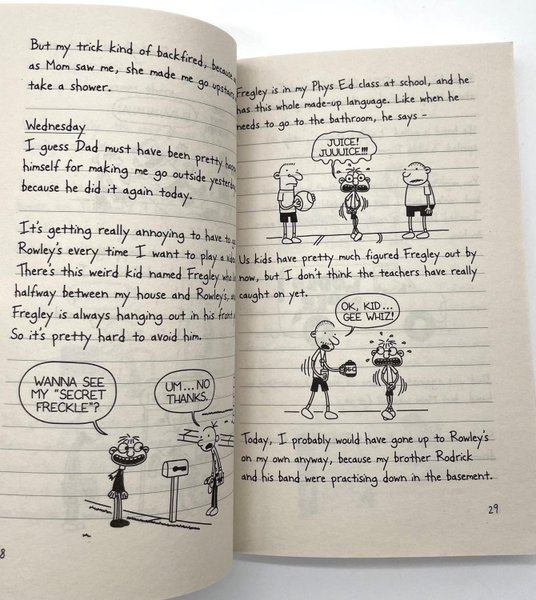 But my trick kind of backfired, because
as Mom saw me, she made me go upstairs
take a shower.
Wednesday
I guess Dad must have been pretty
himself for making me go outside yesterday
because he did it again today.
It's getting really annoying to have to
Rowley's every time I want to play a
There's this weird kid named Fregley who
halfway between my house and Rowley's,
Fregley is always hanging out in his front
So it's pretty hard to avoid him.
WANNA SEE
MY "SECRET
FRECKLE"?
UM...NO
THANKS.
8
Fregley is in my Phys Ed class at school, and he
has this whole made-up language. Like when he
needs to go to the bathroom, he says -
JUICE!
JUUUICE!!!
Us kids have pretty much figured Fregley out by
now, but I don't think the teachers have really
caught on yet.
OK, KID...
GEE WHIZ!
Today, I probably would have gone up to Rowley's
on my own anyway, because my brother Rodrick
and his band were practising down in the basement.
29